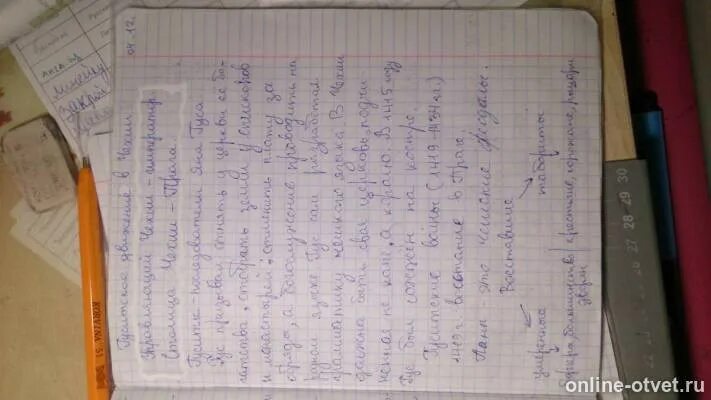 04.12.
Гуситское движение в Чехии
Управляющий Чехии - император
Столица Чехии - Прага
Гуситы - последователи Яна Гуса
Гус призывал отнять у церкви её бо-
гатства, отобрать земли у епископов
и монастырей, отменить плату за
обряды, а богослужение проводить на
родном языке. Гус сам разработал
грамматику чешского языка. В Чехии
должна быть своя церковь, подчи-
нённая не папе, а королю. В 1415 году
Гус был сожжён на костре.
Гуситские войны (1419-1434гг.)
1419г. восстание в Праге.
Паны - это чешские феодалы.
Восставшие
умеренные табориты
бюргеры, большинство крестьяне, горожане, рыцари
дворян
28 29 30
online-otvet.ru